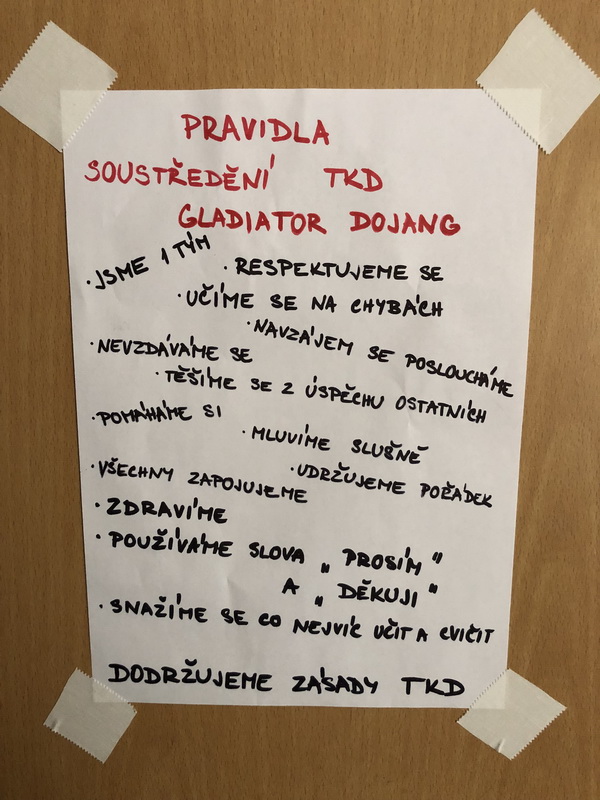 PRAVIDLA
SOUSTŘEDĚNÍ TKD
GLADIATOR DOJANG
· JSME 1 TÝM
· RESPEKTUJEME SE
· UČÍME SE NA CHYBÁCH
· NAVZÁJEM SE POSLOUCHÁME
· NEVZDÁVÁME SE
· TĚŠÍME SE Z ÚSPĚCHU OSTATNÍCH
· POMÁHÁME SI
· MLUVÍME SLUŠNĚ
· VŠECHNY ZAPOJUJEME
· UDRŽUJEME POŘÁDEK
· ZDRAVÍME
· POUŽÍVÁME SLOVA „ PROSÍM "
A „ DĚKUJI "
· SNAŽÍME SE CO NEJVÍC UČIT A CVIČIT
DODRŽUJEME ZÁSADY TKD